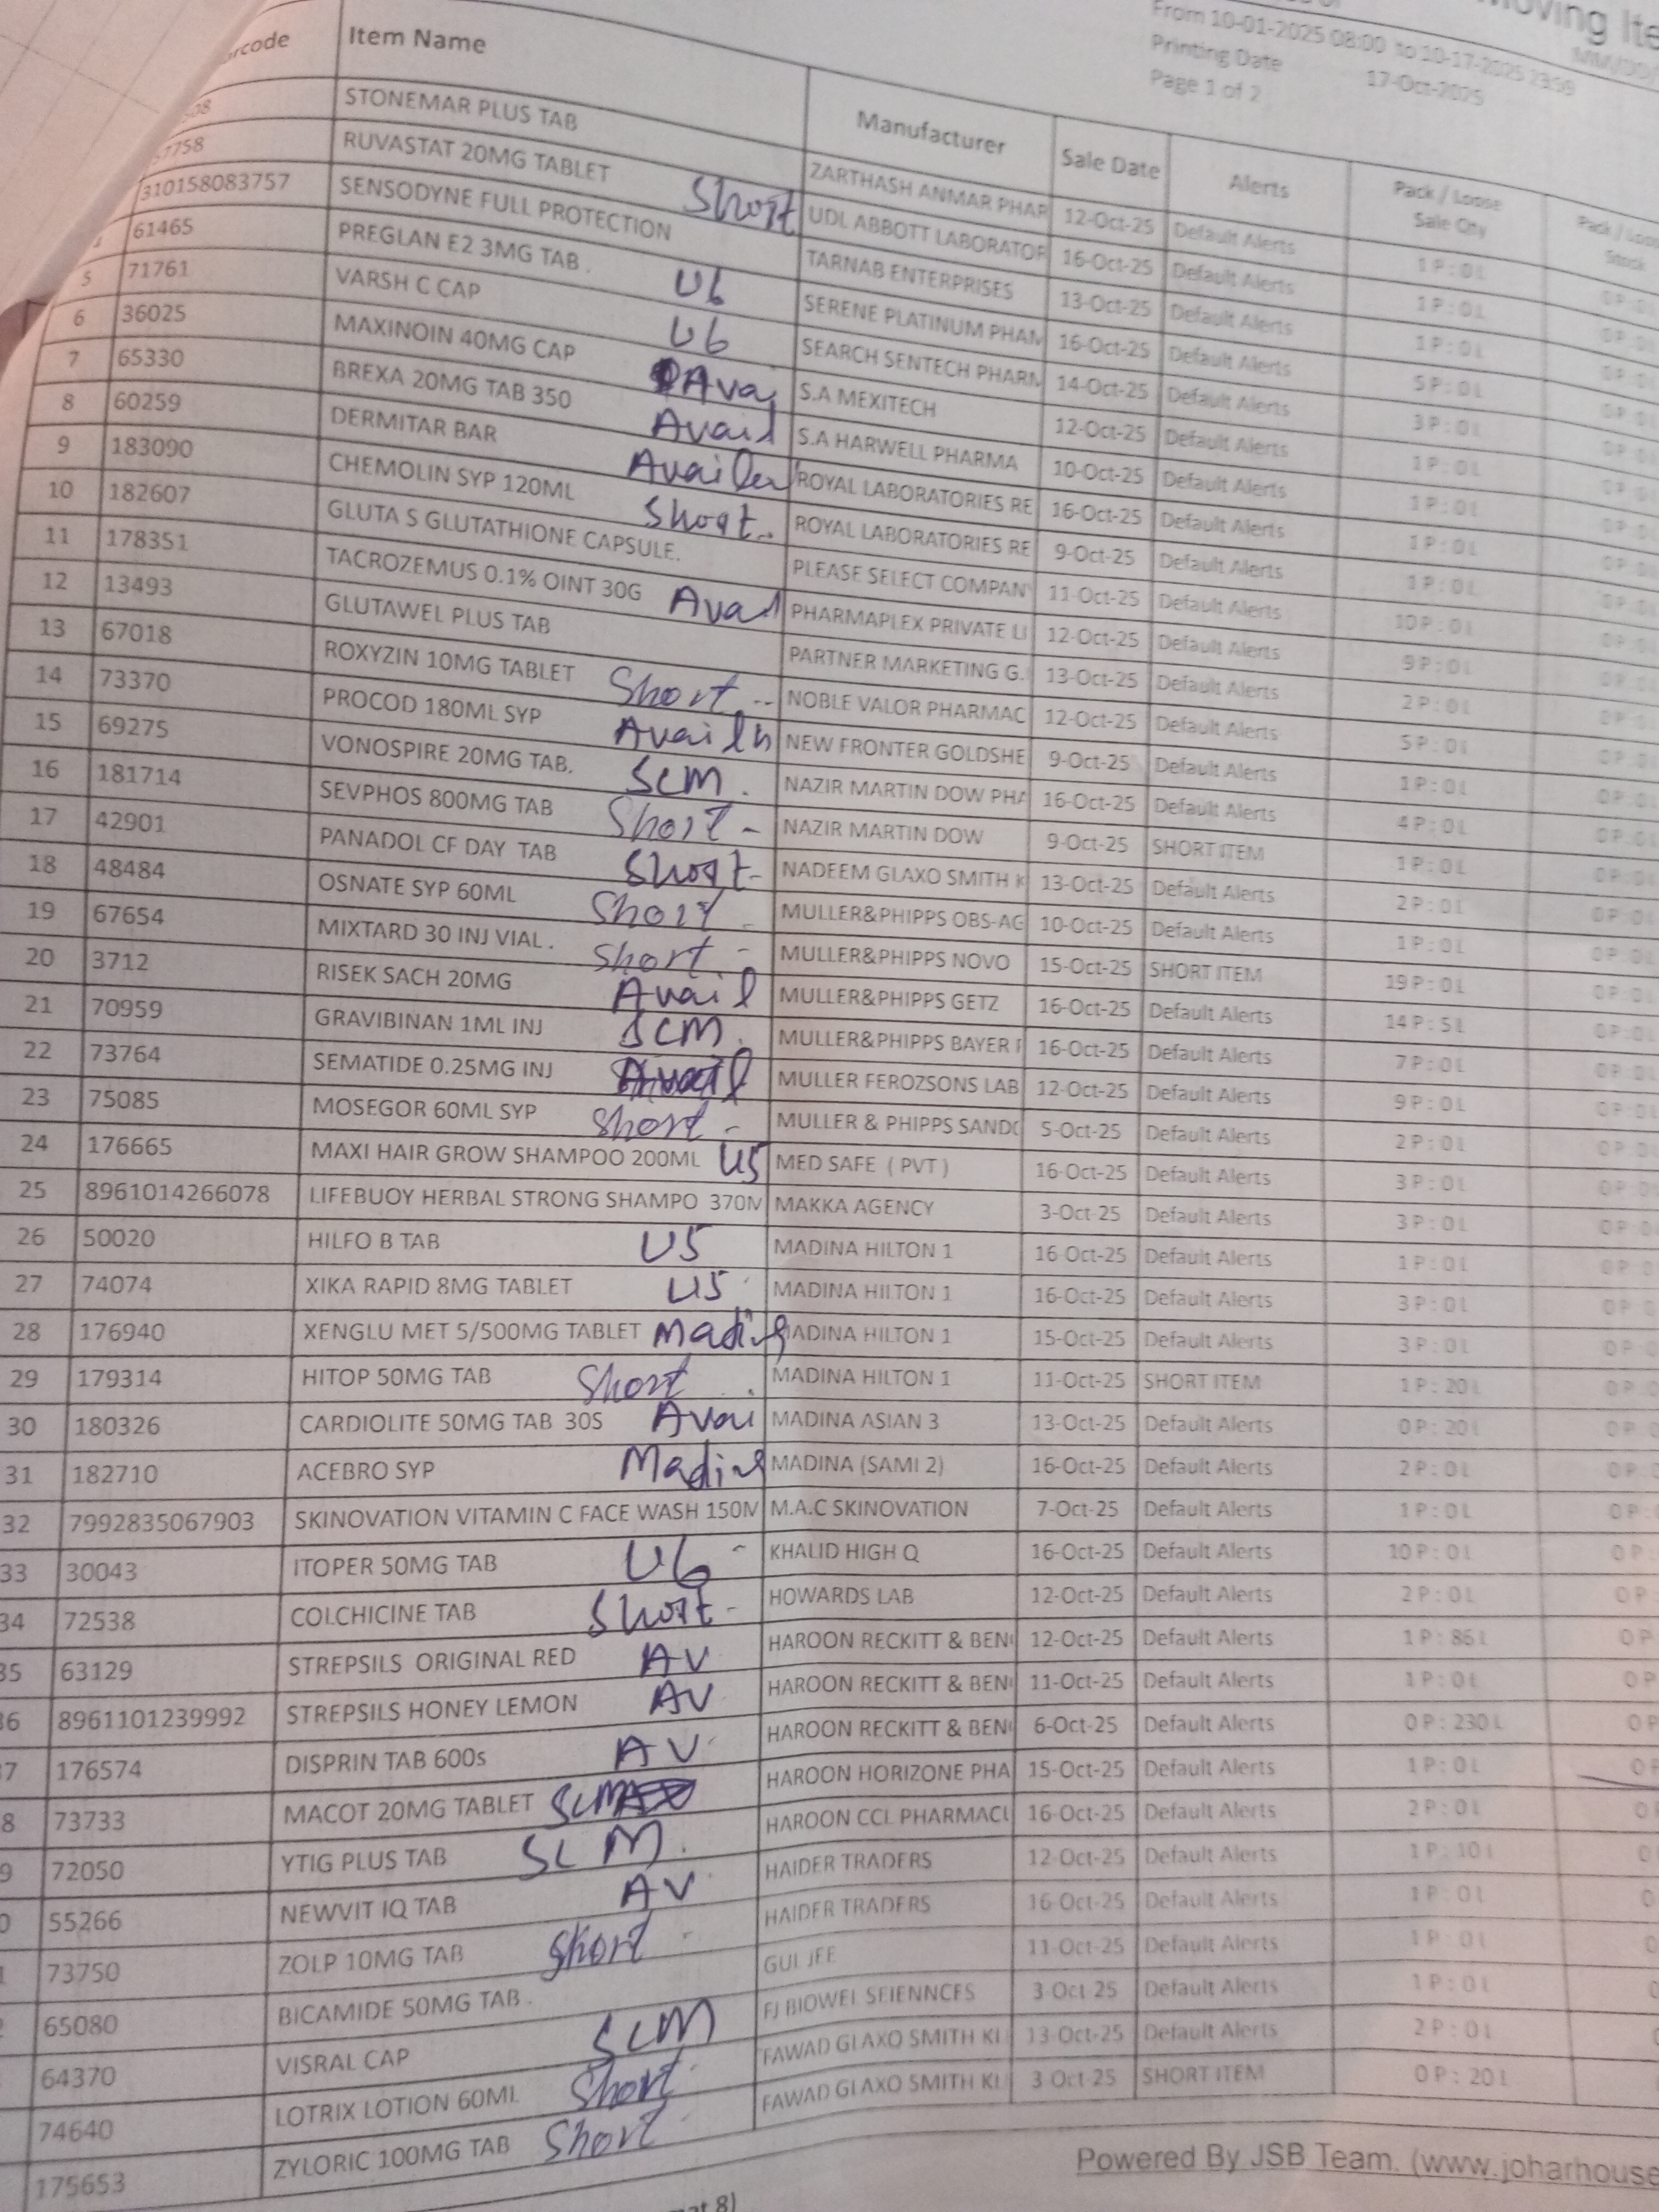 Moving Ite
From 10-01-2025 08:00 to 10-17-2025 23:59
Printing Date 17-Oct-2025
Page 1 of 2
Item Name Manufacturer Sale Date Alerts Pack / Loose Sale Qty Pack / Loose Stock
STONEMAR PLUS TAB ZARTHASH ANMAR PHAR 12-Oct-25 Default Alerts 1P:0L
RUVASTAT 20MG TABLET Short UDL ABBOTT LABORATOR 16-Oct-25 Default Alerts 1P:0L
310158083757 SENSODYNE FULL PROTECTION TARNAB ENTERPRISES 13-Oct-25 Default Alerts 1P:0L
4 61465 PREGLAN E2 3MG TAB . U6 SERENE PLATINUM PHAM 16-Oct-25 Default Alerts 5P:0L
5 71761 VARSH C CAP U6 SEARCH SENTECH PHARM 14-Oct-25 Default Alerts 3P:0L
6 36025 MAXINOIN 40MG CAP Ava S.A MEXITECH 12-Oct-25 Default Alerts 1P:0L
7 65330 BREXA 20MG TAB 350 Avail S.A HARWELL PHARMA 10-Oct-25 Default Alerts 1P:0L
8 60259 DERMITAR BAR ROYAL LABORATORIES RE 16-Oct-25 Default Alerts 1P:0L
9 183090 CHEMOLIN SYP 120ML Short ROYAL LABORATORIES RE 9-Oct-25 Default Alerts 1P:0L
10 182607 GLUTA S GLUTATHIONE CAPSULE. PLEASE SELECT COMPAN 11-Oct-25 Default Alerts 10P:0L
11 178351 TACROZEMUS 0.1% OINT 30G Avail PHARMAPLEX PRIVATE LI 12-Oct-25 Default Alerts 9P:0L
12 13493 GLUTAWEL PLUS TAB PARTNER MARKETING G. 13-Oct-25 Default Alerts 2P:0L
13 67018 ROXYZIN 10MG TABLET Short NOBLE VALOR PHARMAC 12-Oct-25 Default Alerts 5P:0L
14 73370 PROCOD 180ML SYP NEW FRONTER GOLDSHE 9-Oct-25 Default Alerts 1P:0L
15 69275 VONOSPIRE 20MG TAB. SCM. NAZIR MARTIN DOW PHA 16-Oct-25 Default Alerts 4P:0L
16 181714 SEVPHOS 800MG TAB Short NAZIR MARTIN DOW 9-Oct-25 SHORT ITEM 1P:0L
17 42901 PANADOL CF DAY TAB Short NADEEM GLAXO SMITH K 13-Oct-25 Default Alerts 2P:0L
18 48484 OSNATE SYP 60ML Short MULLER&PHIPPS OBS-AG 10-Oct-25 Default Alerts 1P:0L
19 67654 MIXTARD 30 INJ VIAL . Short MULLER&PHIPPS NOVO 15-Oct-25 SHORT ITEM 19P:0L
20 3712 RISEK SACH 20MG Avail MULLER&PHIPPS GETZ 16-Oct-25 Default Alerts 14P:5L
21 70959 GRAVIBINAN 1ML INJ SCM. MULLER&PHIPPS BAYER 16-Oct-25 Default Alerts 7P:0L
22 73764 SEMATIDE 0.25MG INJ MULLER FEROZSONS LAB 12-Oct-25 Default Alerts 9P:0L
23 75085 MOSEGOR 60ML SYP Short MULLER & PHIPPS SANDO 5-Oct-25 Default Alerts 2P:0L
24 176665 MAXI HAIR GROW SHAMPOO 200ML U5 MED SAFE (PVT) 16-Oct-25 Default Alerts 3P:0L
25 8961014266078 LIFEBUOY HERBAL STRONG SHAMPO 370M MAKKA AGENCY 3-Oct-25 Default Alerts 3P:0L
26 50020 HILFO B TAB U5 MADINA HILTON 1 16-Oct-25 Default Alerts 1P:0L
27 74074 XIKA RAPID 8MG TABLET U5 MADINA HILTON 1 16-Oct-25 Default Alerts 3P:0L
28 176940 XENGLU MET 5/500MG TABLET Madina MADINA HILTON 1 15-Oct-25 Default Alerts 3P:0L
29 179314 HITOP 50MG TAB Short MADINA HILTON 1 11-Oct-25 SHORT ITEM 1P:20L
30 180326 CARDIOLITE 50MG TAB 30S Avai MADINA ASIAN 3 13-Oct-25 Default Alerts 0P:20L
31 182710 ACEBRO SYP Madina MADINA (SAMI 2) 16-Oct-25 Default Alerts 2P:0L
32 7992835067903 SKINOVATION VITAMIN C FACE WASH 150M M.A.C SKINOVATION 7-Oct-25 Default Alerts 1P:0L
33 30043 ITOPER 50MG TAB U6 KHALID HIGH Q 16-Oct-25 Default Alerts 10P:0L
34 72538 COLCHICINE TAB Short HOWARDS LAB 12-Oct-25 Default Alerts 2P:0L
35 63129 STREPSILS ORIGINAL RED AV HAROON RECKITT & BEN 12-Oct-25 Default Alerts 1P:86L
36 8961101239992 STREPSILS HONEY LEMON AV HAROON RECKITT & BEN 11-Oct-25 Default Alerts 1P:0L
37 176574 DISPRIN TAB 600s AV HAROON RECKITT & BEN 6-Oct-25 Default Alerts 0P:230L
8 73733 MACOT 20MG TABLET SCM HAROON HORIZONE PHA 15-Oct-25 Default Alerts 1P:0L
9 72050 YTIG PLUS TAB SCM. HAROON CCL PHARMACU 16-Oct-25 Default Alerts 2P:0L
0 55266 NEWVIT IQ TAB AV HAIDER TRADERS 12-Oct-25 Default Alerts 1P:10L
73750 ZOLP 10MG TAB Short HAIDER TRADERS 16-Oct-25 Default Alerts 1P:0L
65080 BICAMIDE 50MG TAB . GULJEE 11-Oct-25 Default Alerts 1P:0L
64370 VISRAL CAP SCM FJ BIOWEL SEIENNCES 3-Oct-25 Default Alerts 1P:0L
74640 LOTRIX LOTION 60ML Short FAWAD GLAXO SMITH KL 13-Oct-25 Default Alerts 2P:0L
175653 ZYLORIC 100MG TAB Short FAWAD GLAXO SMITH KL 3-Oct-25 SHORT ITEM 0P:20L
Powered By JSB Team. (www.joharhouse